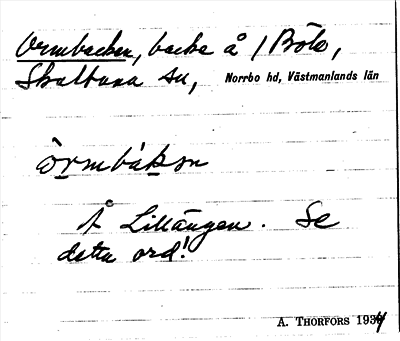 Ormbacken, backe å /Böle,
Skultuna sn, Norrbo hd, Västmanlands län
òrmbákən
Å Lillängen. Se
detta ord!
A. THORFORS 1934